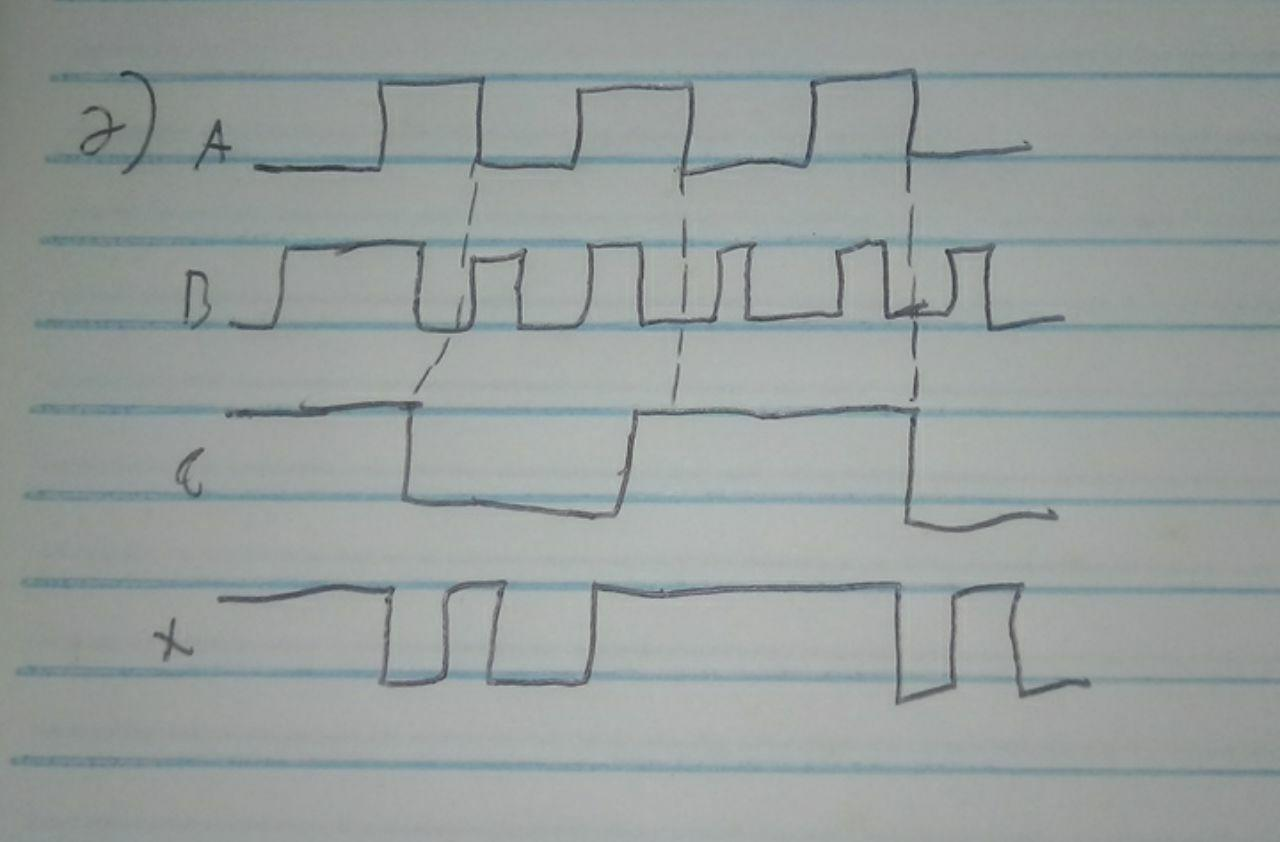 2) A
B
C
X